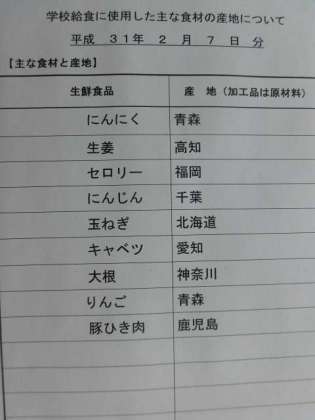 学校給食に使用した主な食材の産地について
平成 31年 2 月 7 日 分
【主な食材と産地】
生鮮食品 産 地（加工品は原材料）
にんにく 青森
生姜 高知
セロリー 福岡
にんじん 千葉
玉ねぎ 北海道
キャベツ 愛知
大根 神奈川
りんご 青森
豚ひき肉 鹿児島